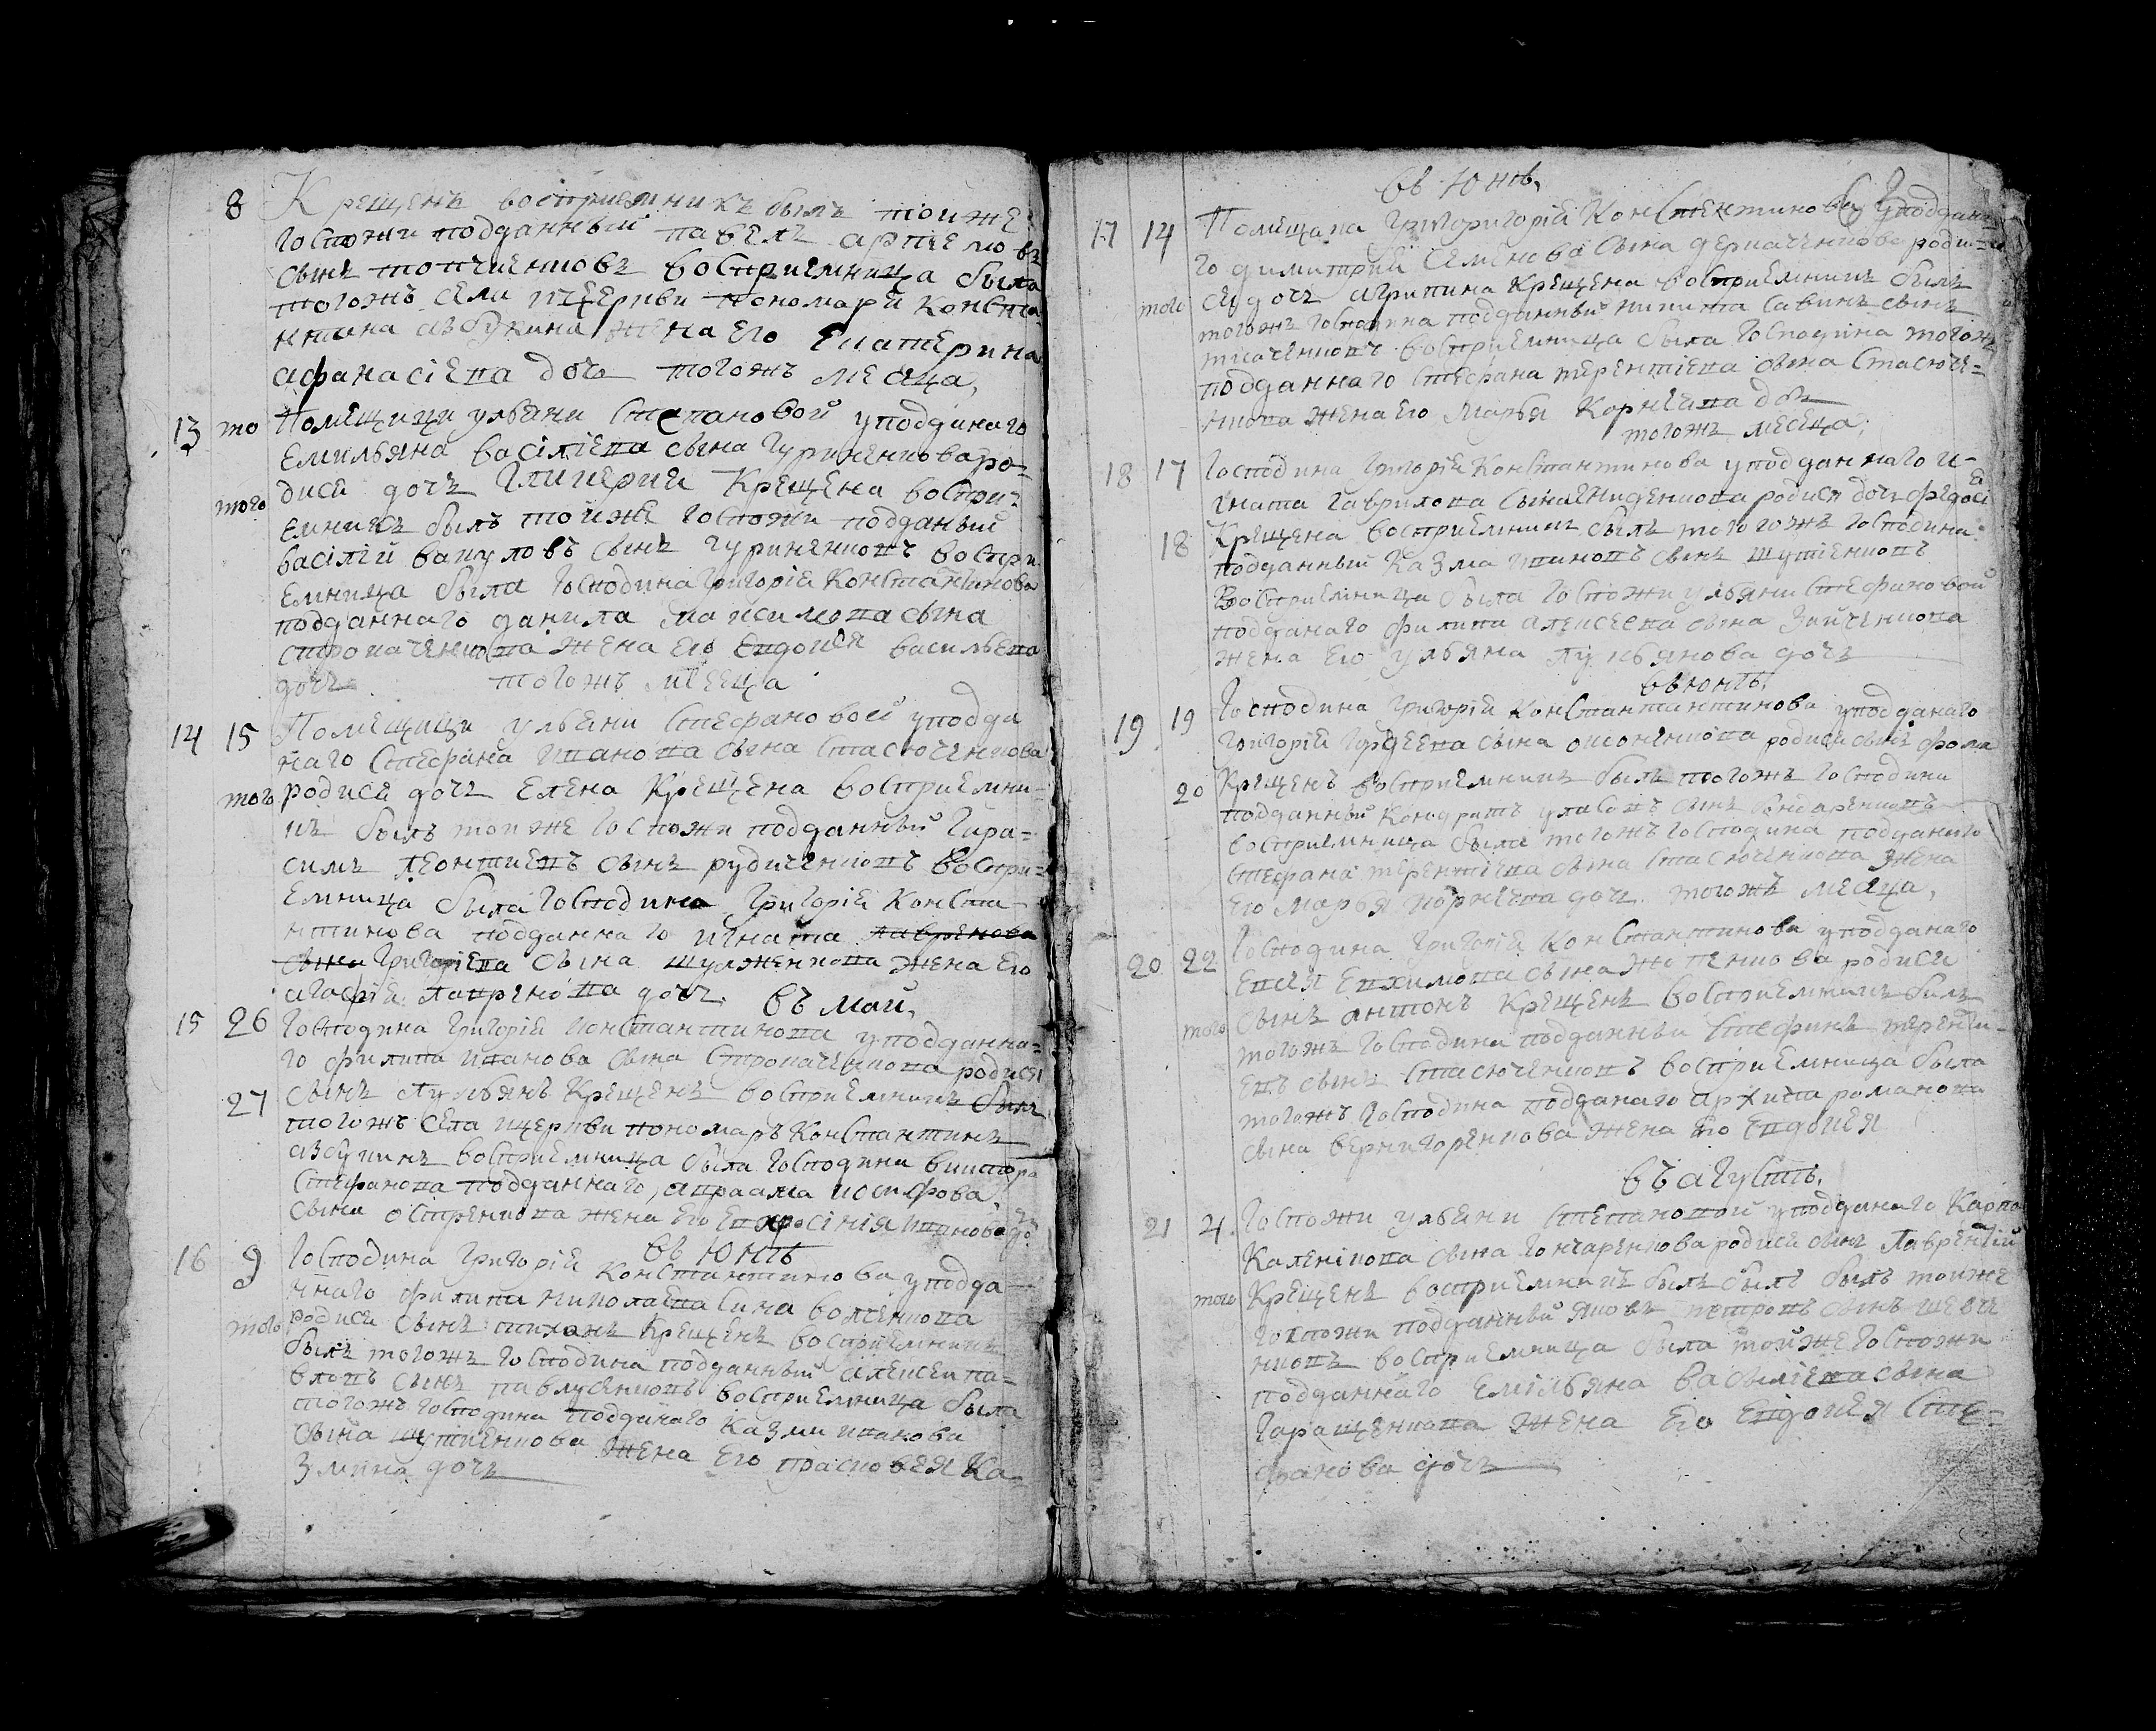 8 Крещенъ восприемникъ былъ тоиже
Госпожи подданный павелъ артиемовъ
сынъ топчиенковъ восприемница была
тогожъ села ицеркви пономаря конста
нтина азбукина жена его Екатерина
афанасіева дочь тогожъ месяца,
13 то Помещици уляни Степановой уподданаго
Емильяна василіева сына Гуриненкова ро-
дися дочь Гликерия Крещена воспри-
того емникъ былъ тойже госпожи подданый
василій вакуловъ сынъ гуриненковъ воспри
емница была Господина Григорія Константинова
подданнаго данила Максимова сына
строкаченкова жена его Евдокія василева
дочь тогожъ месеца
14 15 Помещици улбяни Стефановой уподда
наго Стефана иванова сына Стасюченкова
того родися дочь Елена Крещена восприемни-
къ былъ тоиже госпожи подданный Гара-
симъ леонтиевъ сынъ рудиченковъ воспри-
емница была Господина Григорія Конста-
нтинова подданнаго игната лаврѣнова
сына Григоріева сына шулженкова жена его
агафія лавренова дочь. въ май,
15 26 Господина Григорія константинова уподданна-
го филипа иванова сына Строкаченкова родися
27 сынъ лукьянъ Крещенъ восприемникъ былъ
тогожъ села ицеркви пономаръ Константинъ
азбукинъ восприемница была Господина виктора
Стефанова подданнаго, авраама иосифова
сына острѣнкова жена его Евфросінія иванова до
въ Юнѣ
16 9 Господина Григорія Константинова уподда
ннаго филипа николаева сина волѣнкова
того родися сынъ тихонъ Крещенъ восприемникъ
былъ тогожъ Господина подданный алексей па-
вловъ сынъ павлусенковъ восприемница была
тогожъ Господина подданаго казми иванова
сына шутиенкова жена его прасковея Ка-
змина дочь
въ Юнѣ,
17 14 Помещика Григоригорія Константинова уподданн
го димитрия Семенова сына деркаченкова роди-
ся дочь агрипина Крещена восприемникъ былъ
того тогожъ Господина подданный никита савинъ сынъ
ткаченковъ восприемница была Господина тогожъ
подданнаго Стефана терентіева сына Стасюче-
нкова жена его Марья Корнѣева дочь
тогожъ месеца,
18 17 Господина Григорія Константинова уподданнаго и-
гната Гаврилова сына родися дочь федосі
18 Крещена восприемникъ былъ тогогожъ Господина
подданный Казма ивановъ сынъ шутіенковъ
Восприемница была Госпожи улбяни Стефановой
подданаго филипа алексеева сына Зайченкова
жена его улбяна лукьянова дочь
въ юнѣ,
19 19 Господина Григорія Константантинова уподданаго
Григорія Гурѣева сына родися сынъ фома
20 Крещенъ восприемникъ былъ тогожъ Господина
подданный Кондратъ уласовъ сынъ бондаренковъ
восприемница была тогожъ Господина подданаго
Стефана терентіева сына Стасюченкова жена
его Марья Корнѣева дочь. тогожъ месяца,
20 22 Господина Григорія Константинова уподданаго
Евсѣя Евхимова сына родися
сынъ антонъ Крещенъ восприемникъ былъ
того тогожъ Господина подданный Стефанъ терентi-
евъ сынъ Стасюченковъ восприемница была
тогожъ Господина подданаго архипа романова
сына вернигоренкова жена его Евдокія
въ агустѣ,
21 4. Госпожи улбяни Степановой уподданаго Карпа
Каленікова сына Гончаренкова родися сынъ Лаврентій
того Крещенъ восприемникъ былъ былъ былъ тоиже
госпожи подданный яковъ петровъ сынъ шевче
нковъ восприемница была тойже Госпожи
подданнаго Емільяна Василіева сына
Гаращенкова жена его Евдокія Сте-
фанова дочь